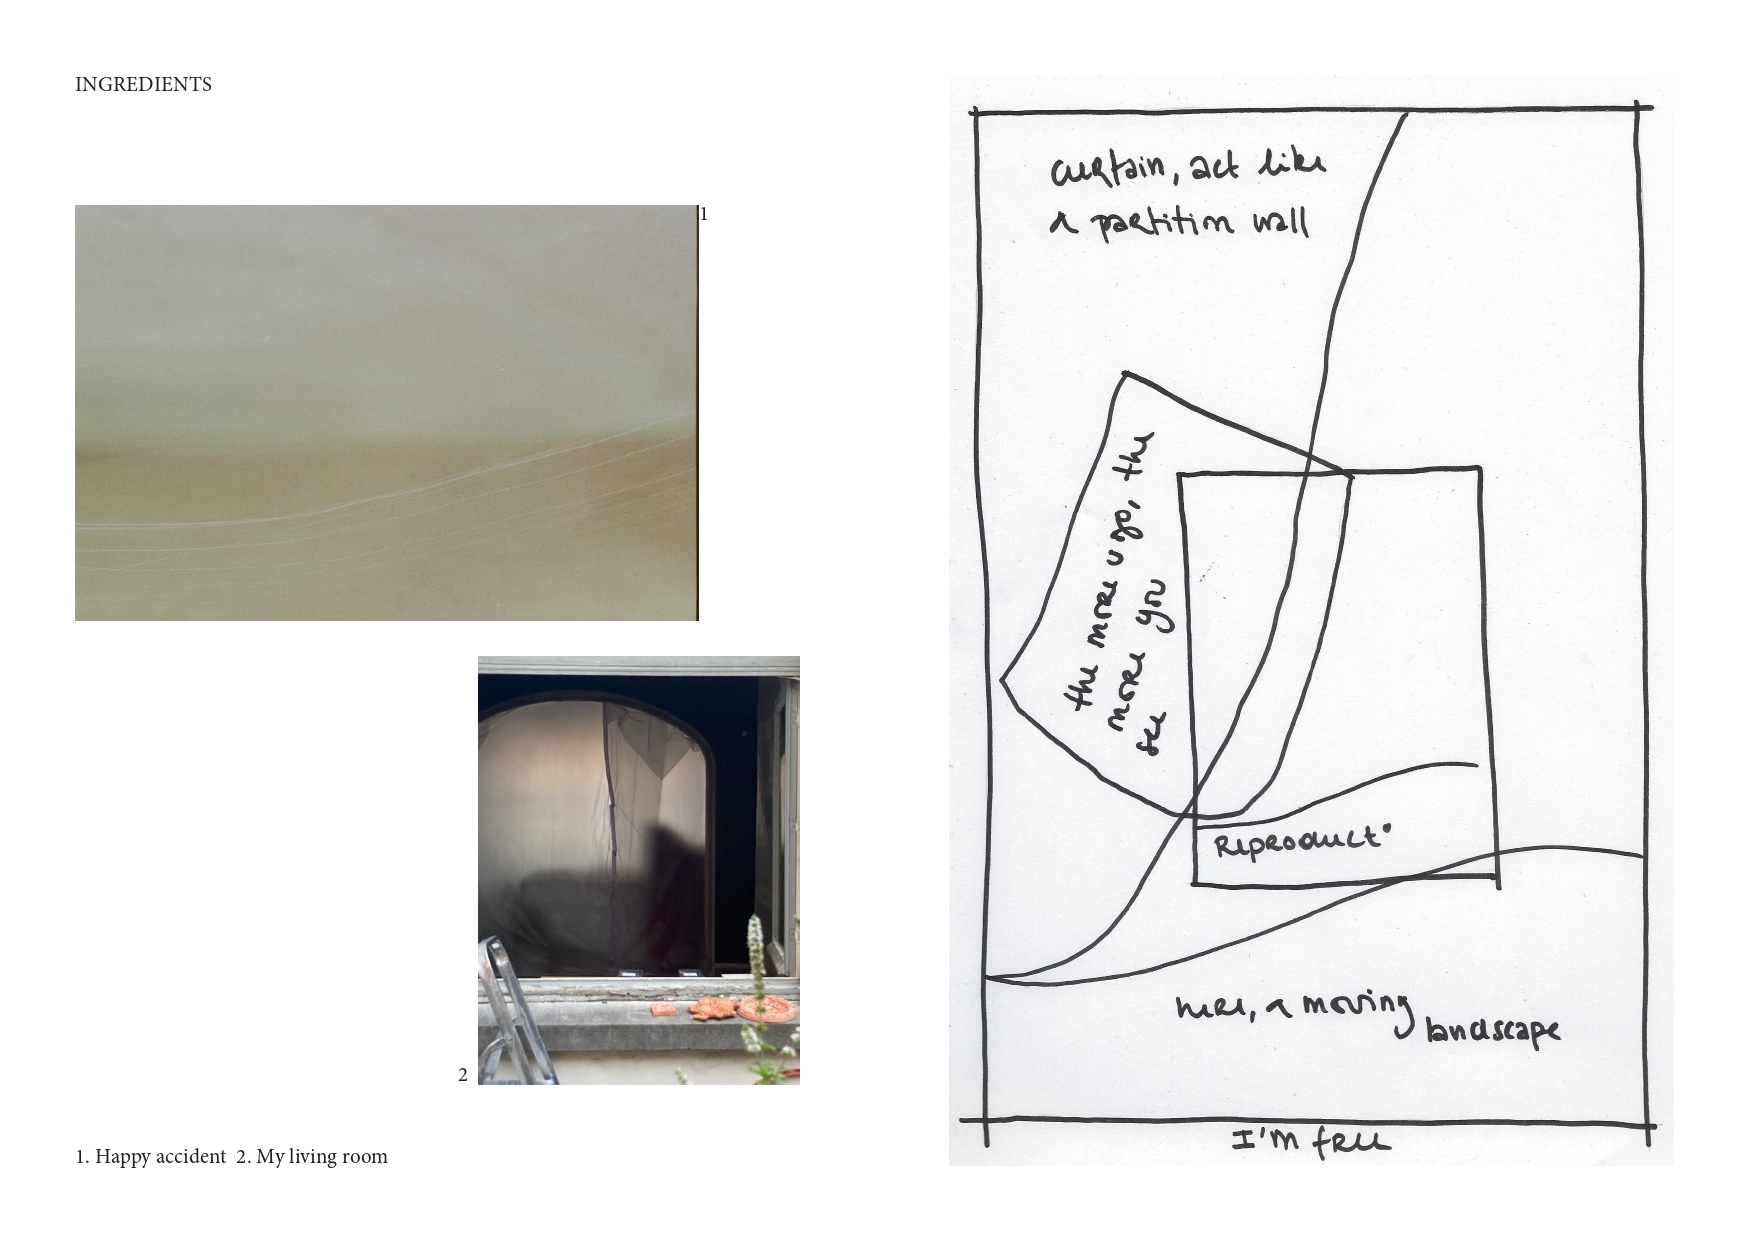 INGREDIENTS
1
2
1. Happy accident 2. My living room
curtain, act like
a partition wall
the more u go, the
more you
see
Reproduct°
here, a moving
landscape
I'm free